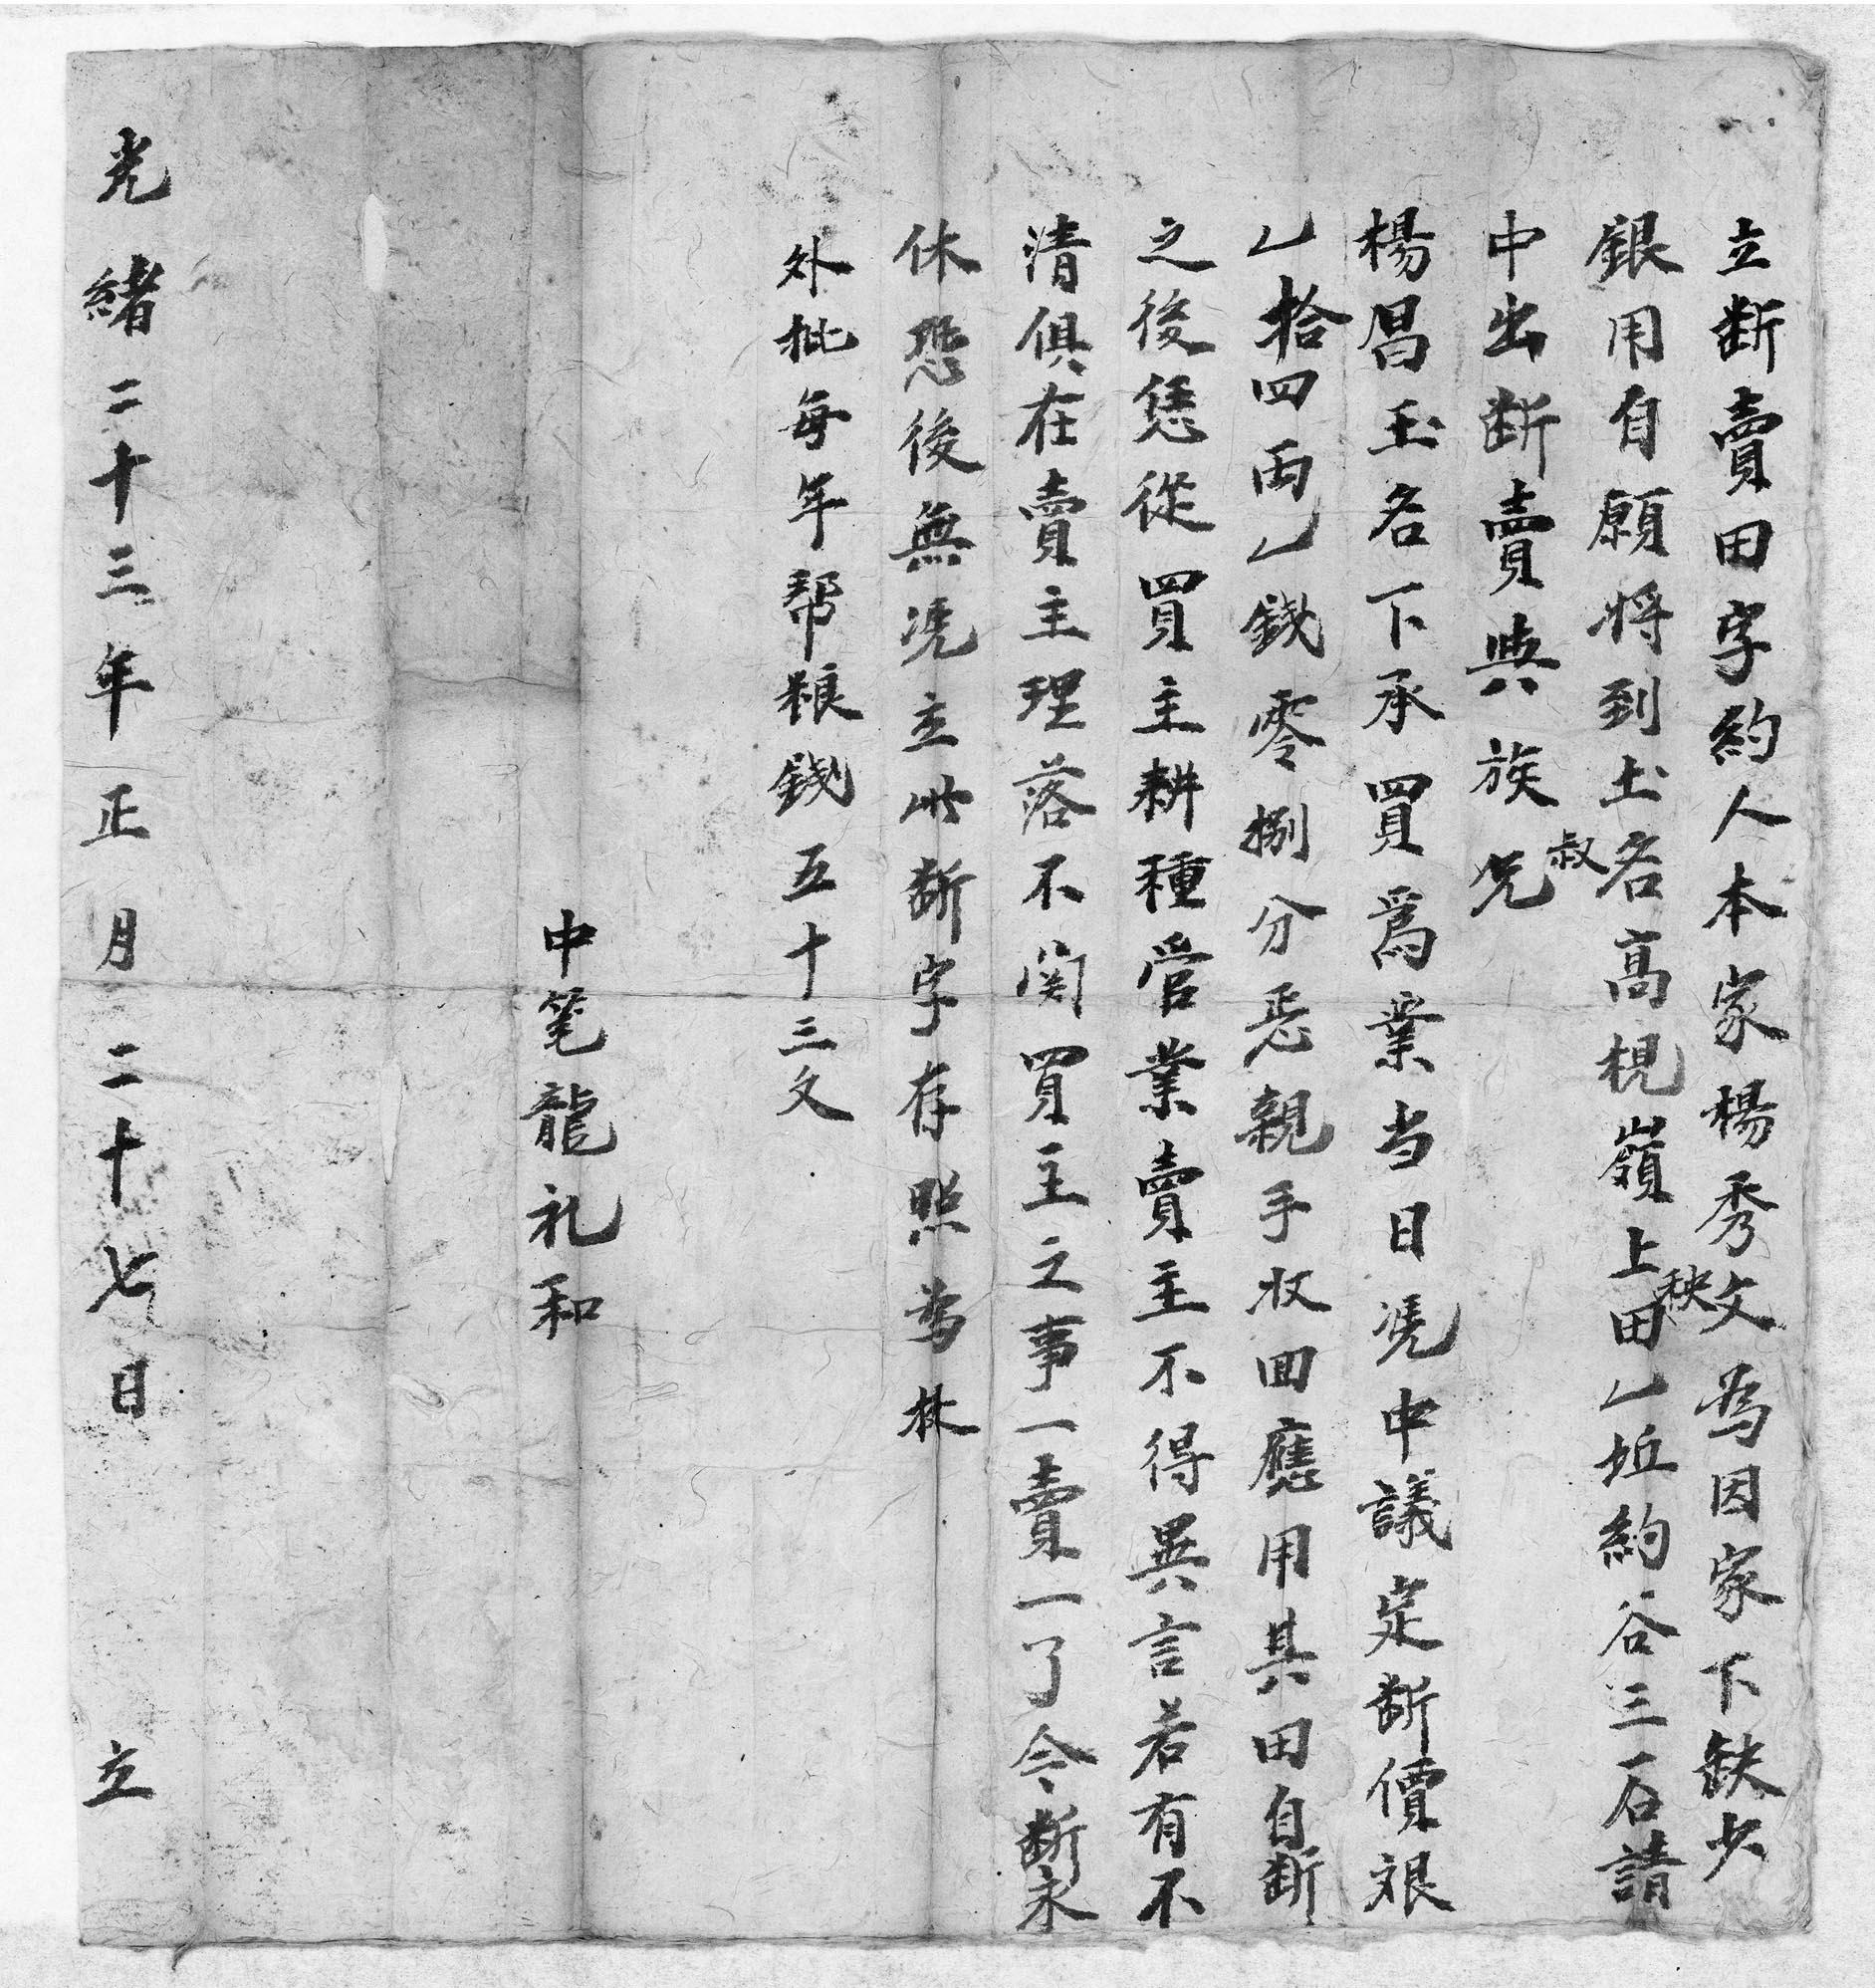 立断賣田字約人本家楊秀文為因家下缺少
銀用自願将到土名高梘嶺上秧田乙坵約谷三石請
中出断賣與族叔兄
楊昌玉名下承買爲業当日凴中議定断價艮
乙拾四両乙錢零捌分恁親手收回應用其田自断
之後恁從買主耕種管業賣主不得異言若有不
清俱在賣主理落不関買主之事一賣一了今断永
休恐後無凴立此断字存照為林
外批每年帮粮錢五十三文
中笔龍礼和
光緒二十三年正月二十七日 立